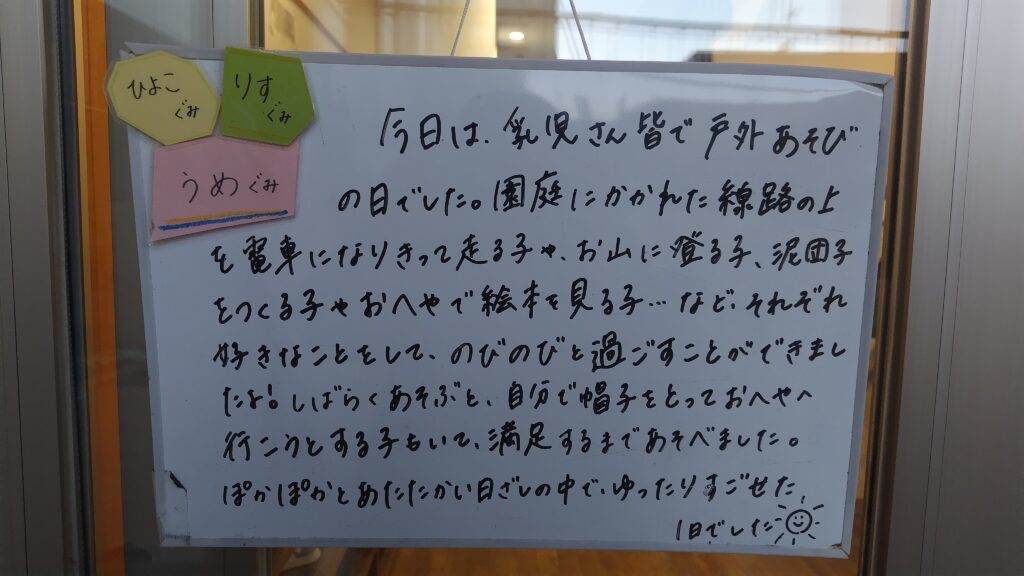 ひよこ
ぐみ
りす
ぐみ
うめぐみ
今日は、乳児さん皆で戸外あそび
の日でした。園庭にかかれた線路の上
を電車になりきって走る子や、お山に登る子、泥団子
をつくる子やおへやで絵本を見る子…など、それぞれ
好きなことをして、のびのびと過ごすことができまし
たよ!しばらくあそぶと、自分で帽子をとっておへやへ
行こうとする子もいて、満足するまであそべました。
ぽかぽかとあたたかい日ざしの中で、ゆったりすごせた
1日でした